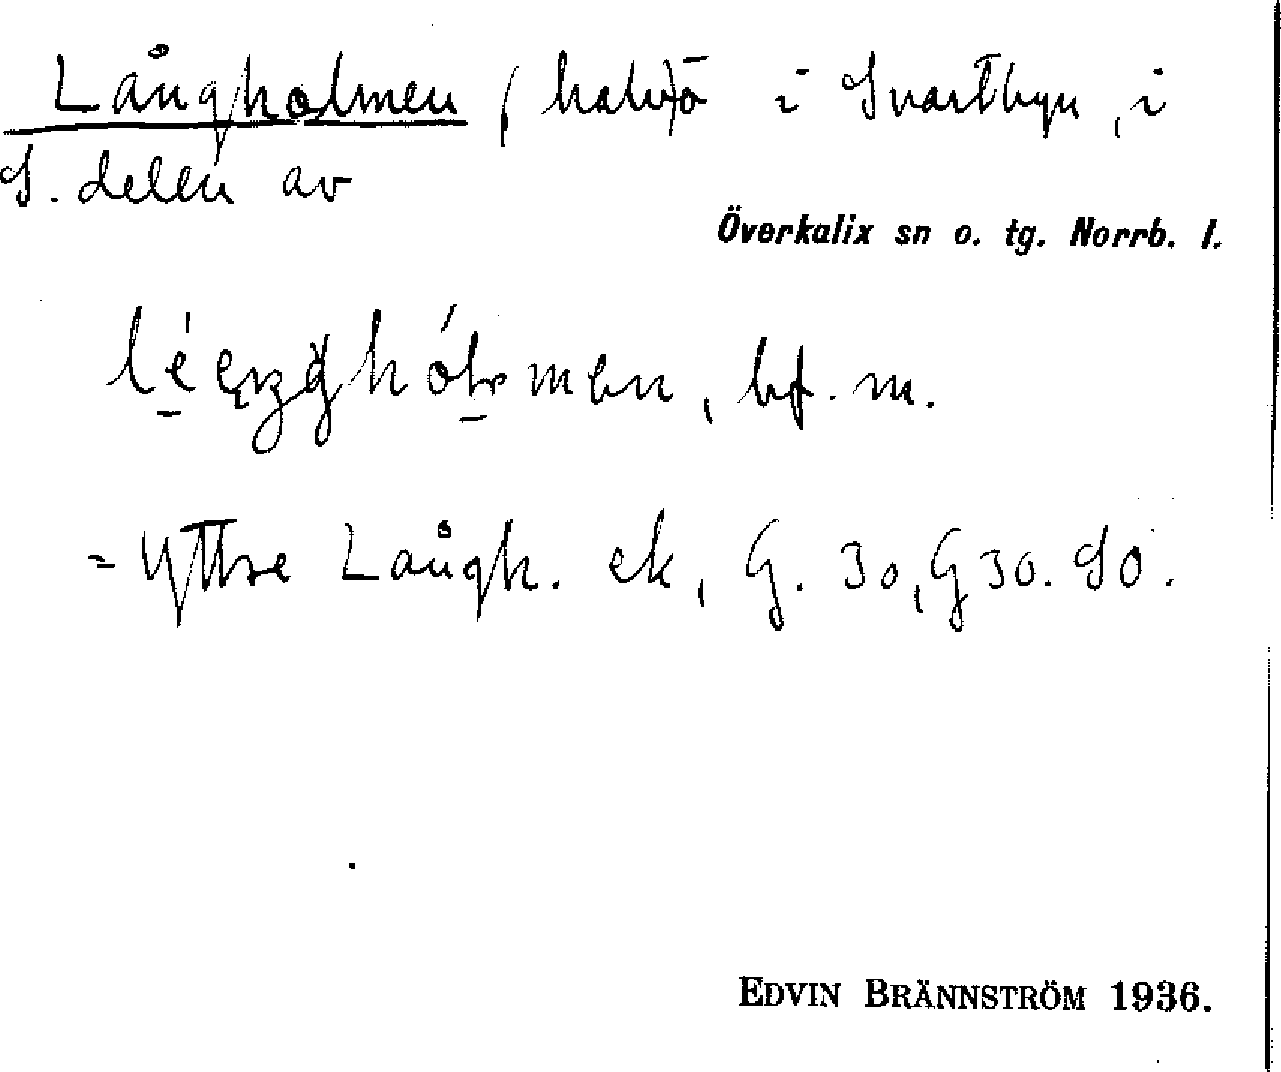 Långholmen, halvö i Svartbyn, i
S. delen av
Överkalix sn o. tg. Norrb. l.
bf. m.
= Yttre Långh. ek, G. 30, G 30. SO.
EDVIN BRÄNNSTRÖM 1936.